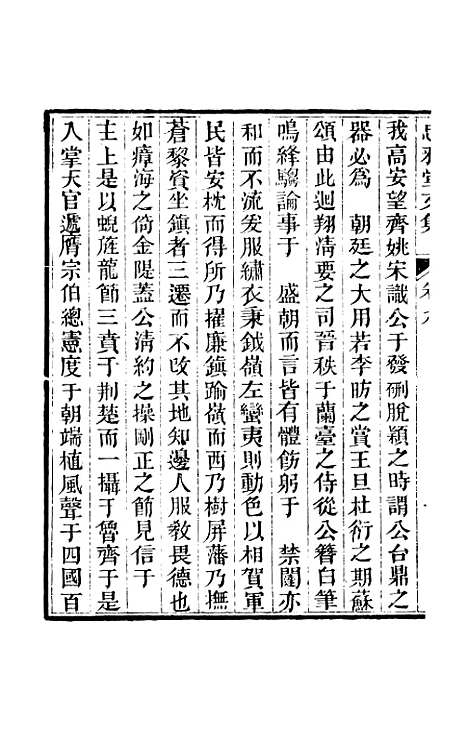 我高安望齊姚宋識公于發硎脫穎之時謂公台鼎之
器必爲　朝廷之大用若李昉之賞王旦杜衍之期蘇
頌由此迴翔清要之司晉秩于蘭臺之侍從公簪白筆
鳴絳騶論事于　盛朝而言皆有體飭躬于　禁闥亦
和而不流爰服繡衣秉鉞嶺左蠻夷則動色以相賀軍
民皆安枕而得所乃擢廉鎮踰嶺而西乃樹屏藩乃撫
蒼黎資坐鎮者三遷而不改其地知邊人服教畏德也
如瘴海之倚金隄蓋公清約之操剛正之節見信于
主上是以蜺旌龍節三賁于荆楚而一攝于魯齊于是
入掌天官遞膺宗伯總憲度于朝端植風聲于四國百